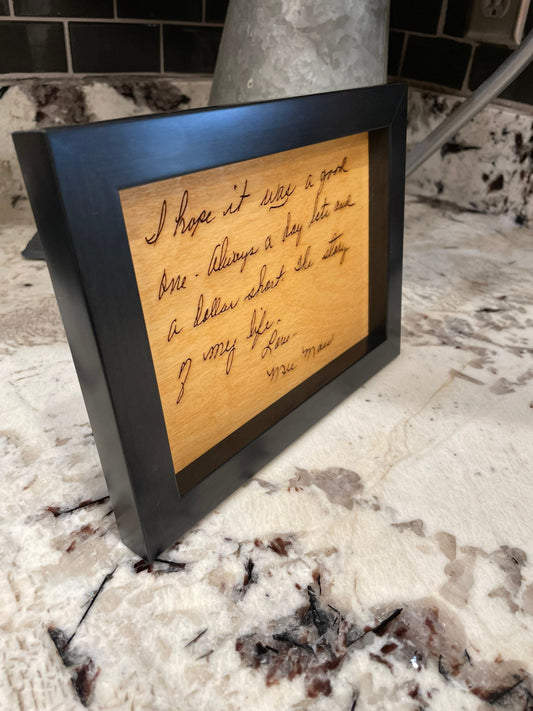 I hope it was a good
one. Always a day late and
a dollar short. The story
of my life.
Love.